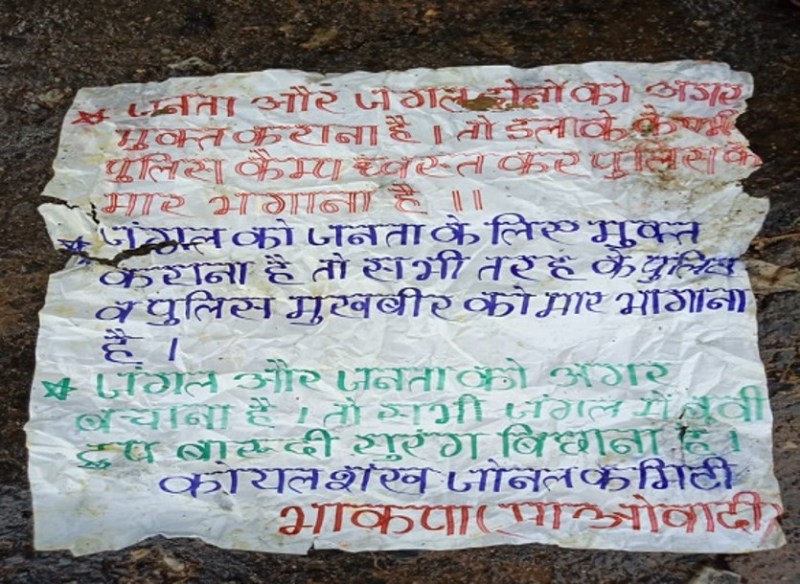 ★ जनता और जंगल दोनों को अगर
मुक्त कराना है। तो इलाके के सभी
पुलिस कैम्प ध्वस्त कर पुलिस के
मार भगाना है॥
★ जंगल को जनता के लिए मुक्त
कराना है तो सभी तरह के पुलिस
व पुलिस मुखबीर को मार भागाना
है।
★ जंगल और जनता को अगर
बचाना है। तो सभी जंगल में
बारूदी सुरंग बिछाना है।
कोयल शंख जोनल कमिटी
भाकपा (माओवादी)